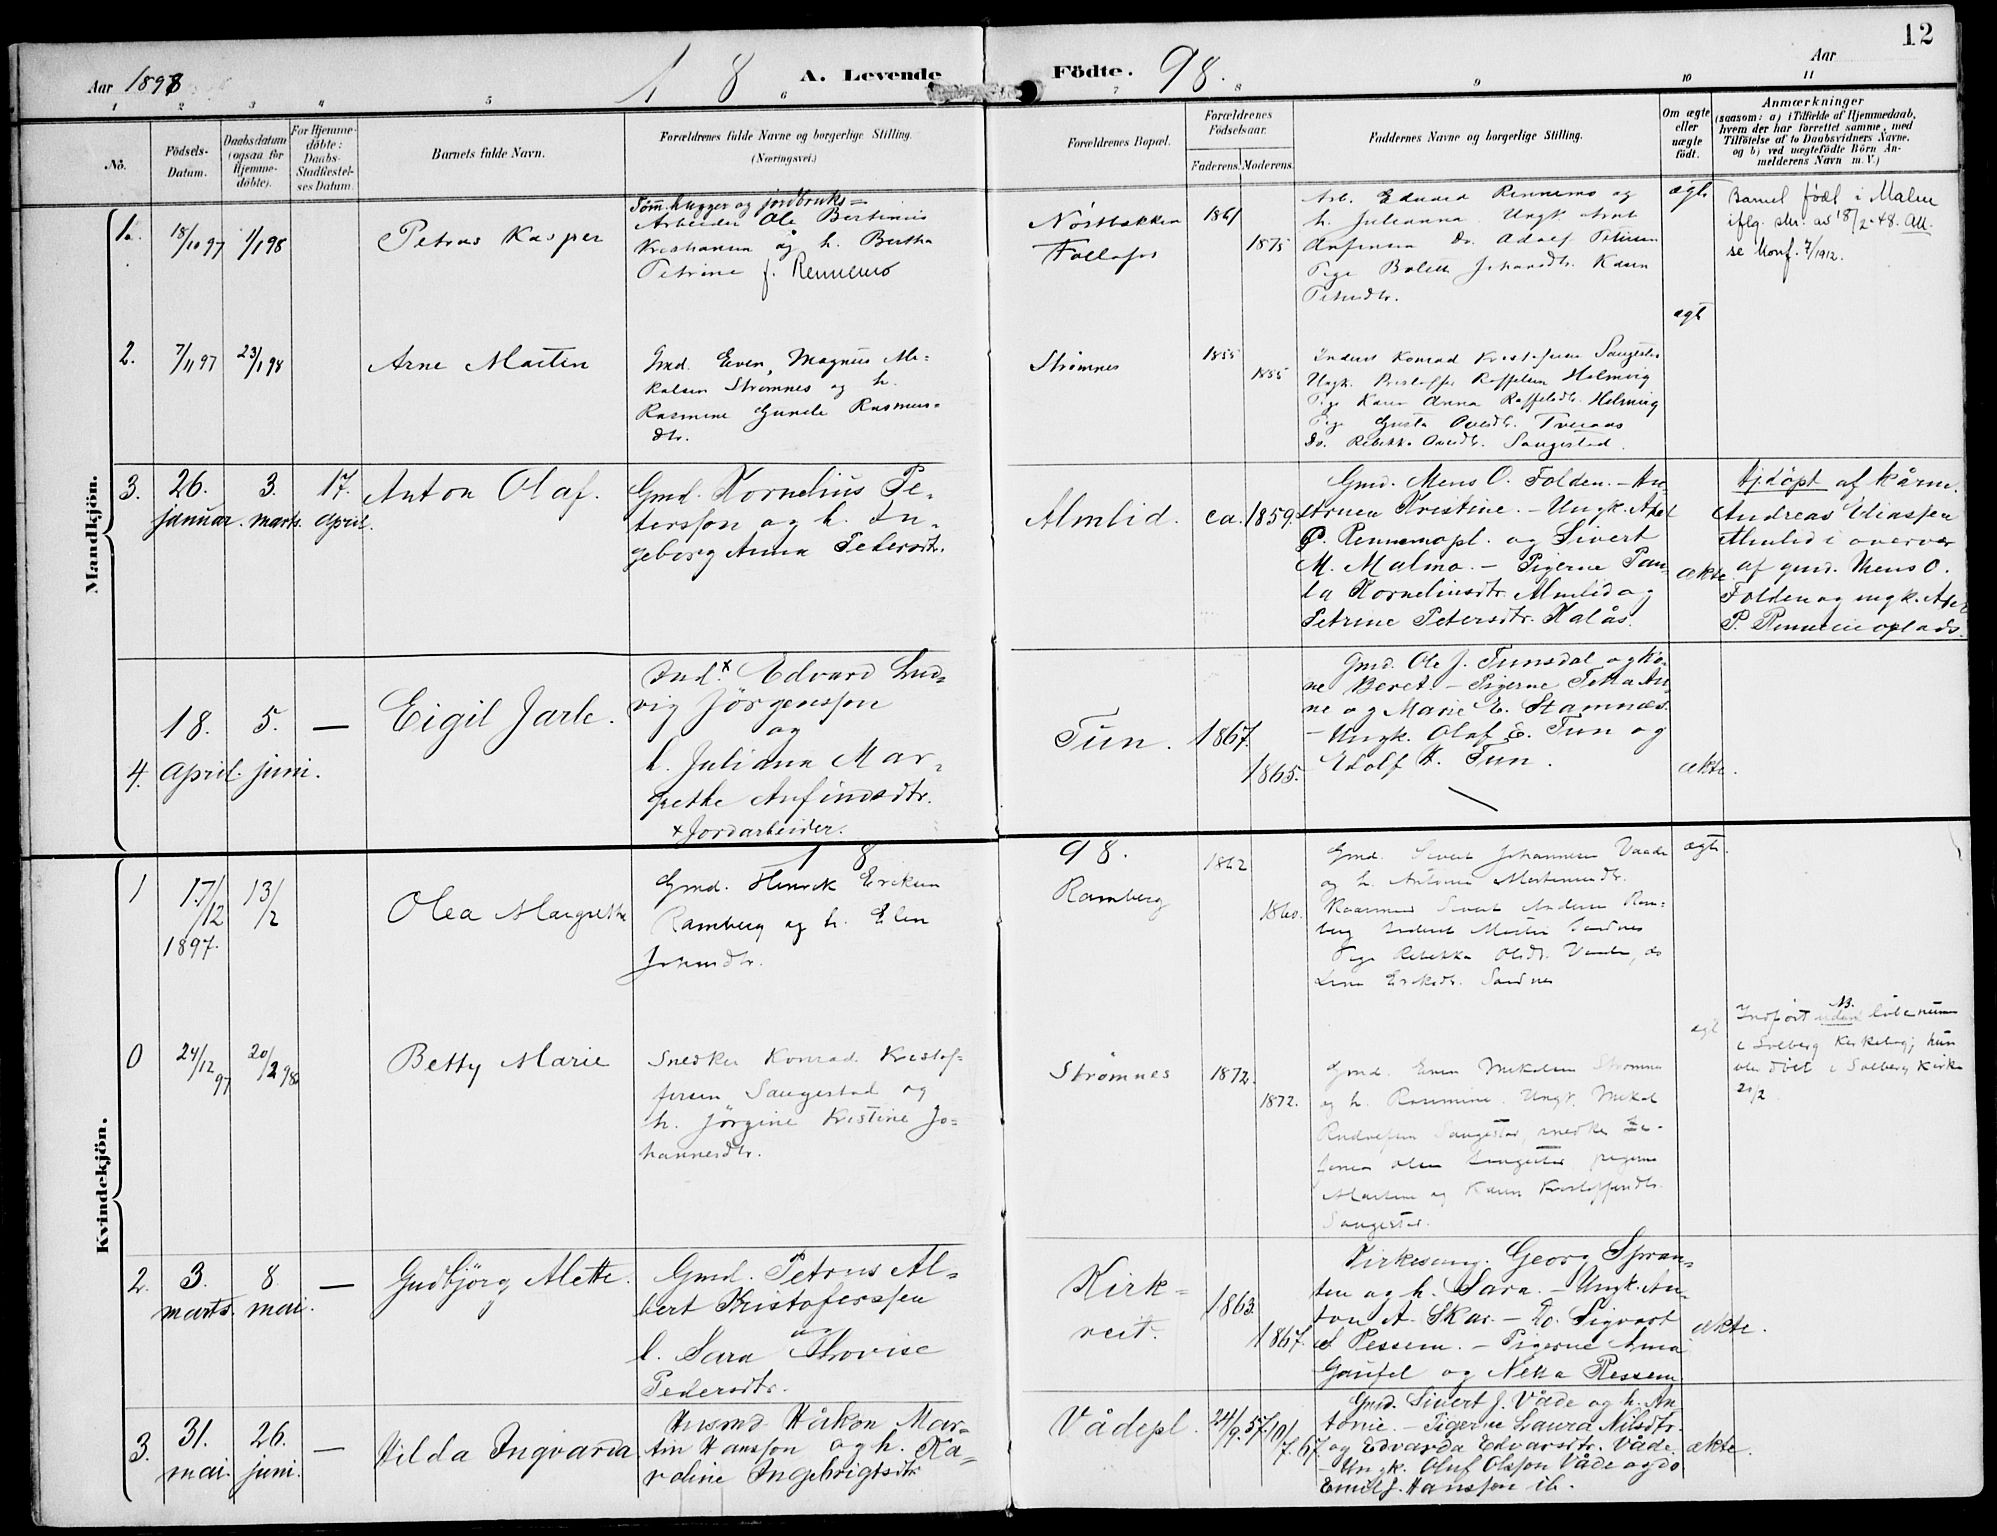 12
Aar 1898
1 8 A. Levende Födte. 98.
Aar
1 2 3 4 5 6 7 8 9 10 11
No.
Födsels-Datum.
Daabsdatum (ogsaa for Hjemme-döbte).
For Hjemme-döbte: Daabs-Stadfæstel-ses Datum.
Barnets fulde Navn.
Forældrenes fulde Navne og borgerlige Stilling.
(Næringsvei.)
Forældrenes Bopæl.
Forældrenes Födselsaar.
Faderens. Moderens.
Faddernes Navne og borgerlige Stilling.
Om ægte eller uægte födt.
Anmærkninger
(saasom: a) i Tilfælde af Hjemmedaab,
hvem der har forrettet samme, med
Tilföielse af to Daabsvidners Navne.
og b) ved uægtefödte Börn An-
melderens Navn m. V.)
Mandkjön.
1.
18/10 97
1/1 98
Petrus Kasper
Tömhugger og jordbruks=
Arbeider Ole Bertinius
Kristiansen og h. Bertha
Petrine f. Rennemo
Nöstbakken
Follafos
1861
1875
Arb. Edvard Rennemo og
h. Julianna Ungk.
Do. Adolf Petersen
Pige Bolette Johansdtr. Karen
Petersdtr.
ægte
Barnet födt i Malm
iflg. skr. av 18/2-48.
se konf. 7/1912.
2.
7/11 97
23/1 98
Arne Martin
Gmd. Even Magnus Mi-
kalsen Strömnes og h.
Rasmine Gunele Rasmus=
dtr.
Strömnes
1855
1855
Inderst Konrad Kristofersen Saugestad
Ungk. Helmvig
Pige Karen Anna Helmvig
Pige Gusta Tveraas
Do. Rebekka Saugestad.
ægte
3.
26. januar.
3. marts.
17. april.
Anton Olaf.
Gmd. Kornelius Pe-
terssön og h. In-
geborg Anna Petersdtr.
Almlid.
ca. 1859.
Gmd. Mens O. Folden. - ku-
struen Kristine. - Ungk. Axel
P. Rennemopl. og Sivert
M. Malmo. - Pigerne Pau-
la Korneliusdtr. Almlid og
Petrine Petersdtr. Kalås.
ekte
Hjdöpt af kårm.
Andreas Eliassen
Almlid i overvær
af gmd. Mens O.
Folden og ungk. Axel
P. Rennemoplads.
4.
18. april.
5. juni.
—
Eigil Jarle.
Ind.x Edvard Lud-
vig Jörgenssön
og
h. Juliana Mar-
grethe Anfindsdtr.
x Jordarbeider.
Tun.
1867.
1865.
Gmd. Ole J. Tunsdal og ko-
ne Beret. - Pigerne
ne og Marie E. Stamnæs
- Ungk. Olaf E. Tun og
Edolf H. Tun.
ekte.
Kvindekjön.
1 8 98.
1
17/12 1897.
13/2
Olea Margrethe
Gmd. Henrik Eriksen
Ramberg og h. Elen
Johansdtr.
Ramberg
1862
1860.
Gmd. Sivert Johannesen Vaade
og h. Antonie
Kaarmand Sivert Andersen Ram-
berg Inderst Martin Sandnes
Pige Rebekka Olsdtr. Vaade, do
Lina Eriksdtr. Sandnes
ægte.
0
24/12 97
20/2 98
Betty Marie
Snedker Konrad Kristof-
fersen Saugestad og
h. Jörgine Kristine Jo-
hannesdtr.
Strömnes
1872.
1872.
Gmd. Even Mikalsen Strömnes
og h. Rasmine. Ungk. Mikal
Saugestad, snedker
Olsen Saugestad pigerne
Martine og Karen Kristoffersdtr.
Saugestad.
ægte
NB.
Indfört uden löbenum
i Solberg Kirkebog; hun
blev döbt i Solberg Kirke
20/2
2.
3. marts.
8. mai.
—
Gudbjörg Alette.
Gmd. Petrus Al-
bert Kristoferssen
og
h. Sara Lovise
Pedersdtr.
Kirk-
reit.
1863
1867.
Kirkesang. Georg Spran-
ten og h. Sara. - Ungk. An-
ton A. Skar. - do. Sigvart
A Ressem. - Pigerne Anna
Gausel og Nella Ressem
ekte.
3.
31. mai.
26. juni.
—
Hilda Ingvarda
Husmd. Håkon Mar-
tin Hanssön og h. Ka-
roline Ingebrigtsdtr.
Vådepl.
24/9. 57.
10/7. 67.
Gmd. Sivert J. Våde og h. An-
tonie. - Pigerne Laura Nilsdtr.
og Edvarda Edvarsdtr. Våde.
- Ungk. Oluf Olssön Våde og do
Emil J. Hanssön ib.
ekte.